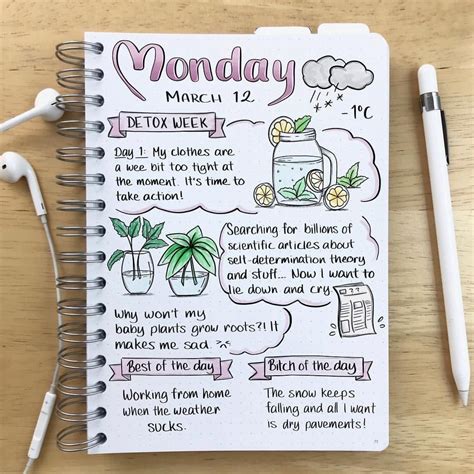 Monday
MARCH 12
-1°C
DETOX WEEK
Day 1: My clothes are
a wee bit too tight at
the moment. It's time to
take action!
Searching for billions of
scientific articles about
self-determination theory
and stuff... Now I want to
lie down and cry.
???
Why won't my
baby plants grow roots?! It
makes me sad.
Best of the day
Working from home
when the weather
sucks.
Bitch of the day
The snow keeps
falling and all I want
is dry pavements!